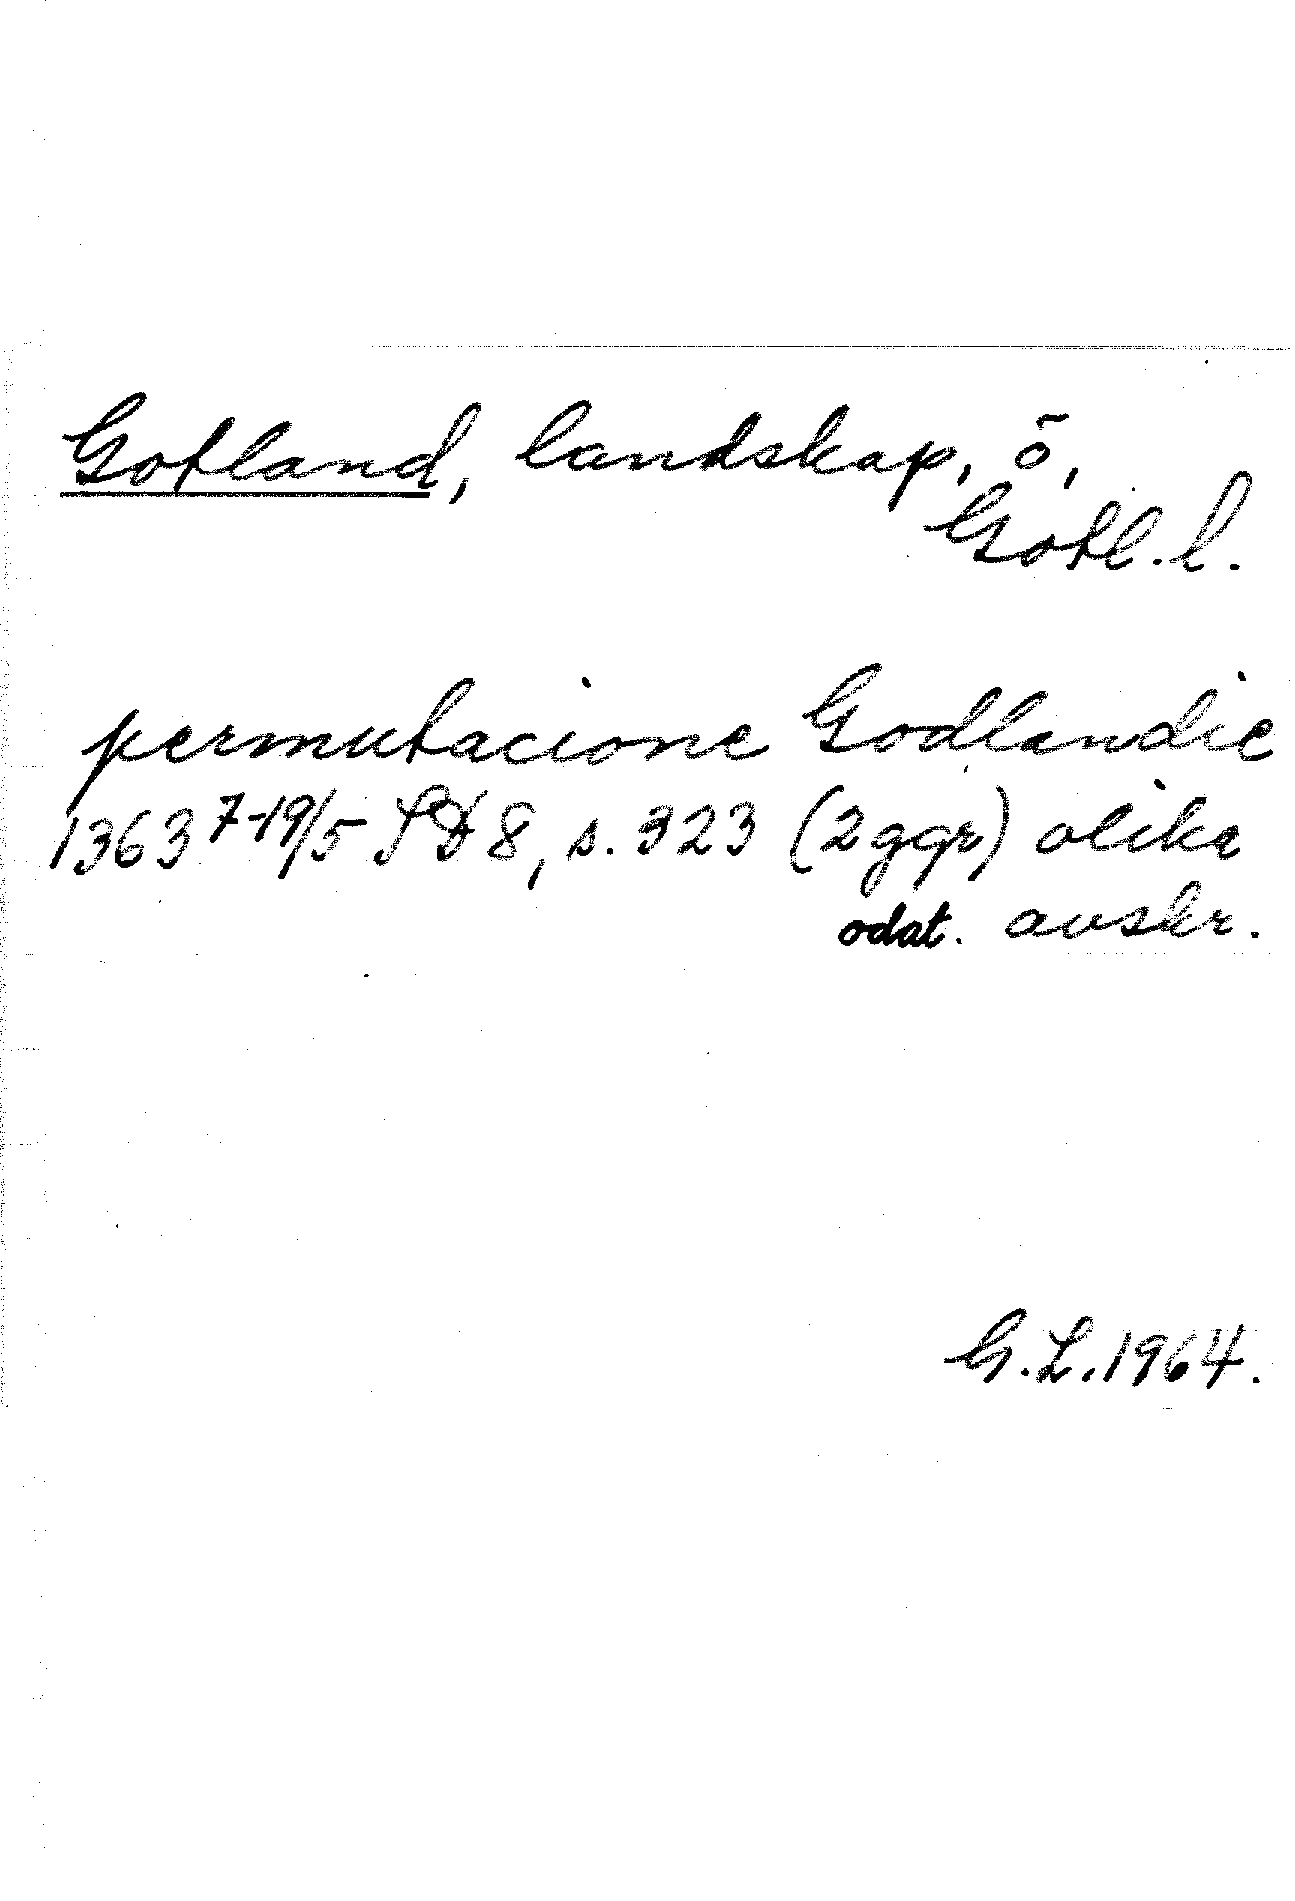 Gotland, landskap, ö,
Gotl. l.
permutacione Godlandie
1363 7-19/5 SD 8, s. 323 (2 ggr) olika
odat. avskr.
G.L. 1964.